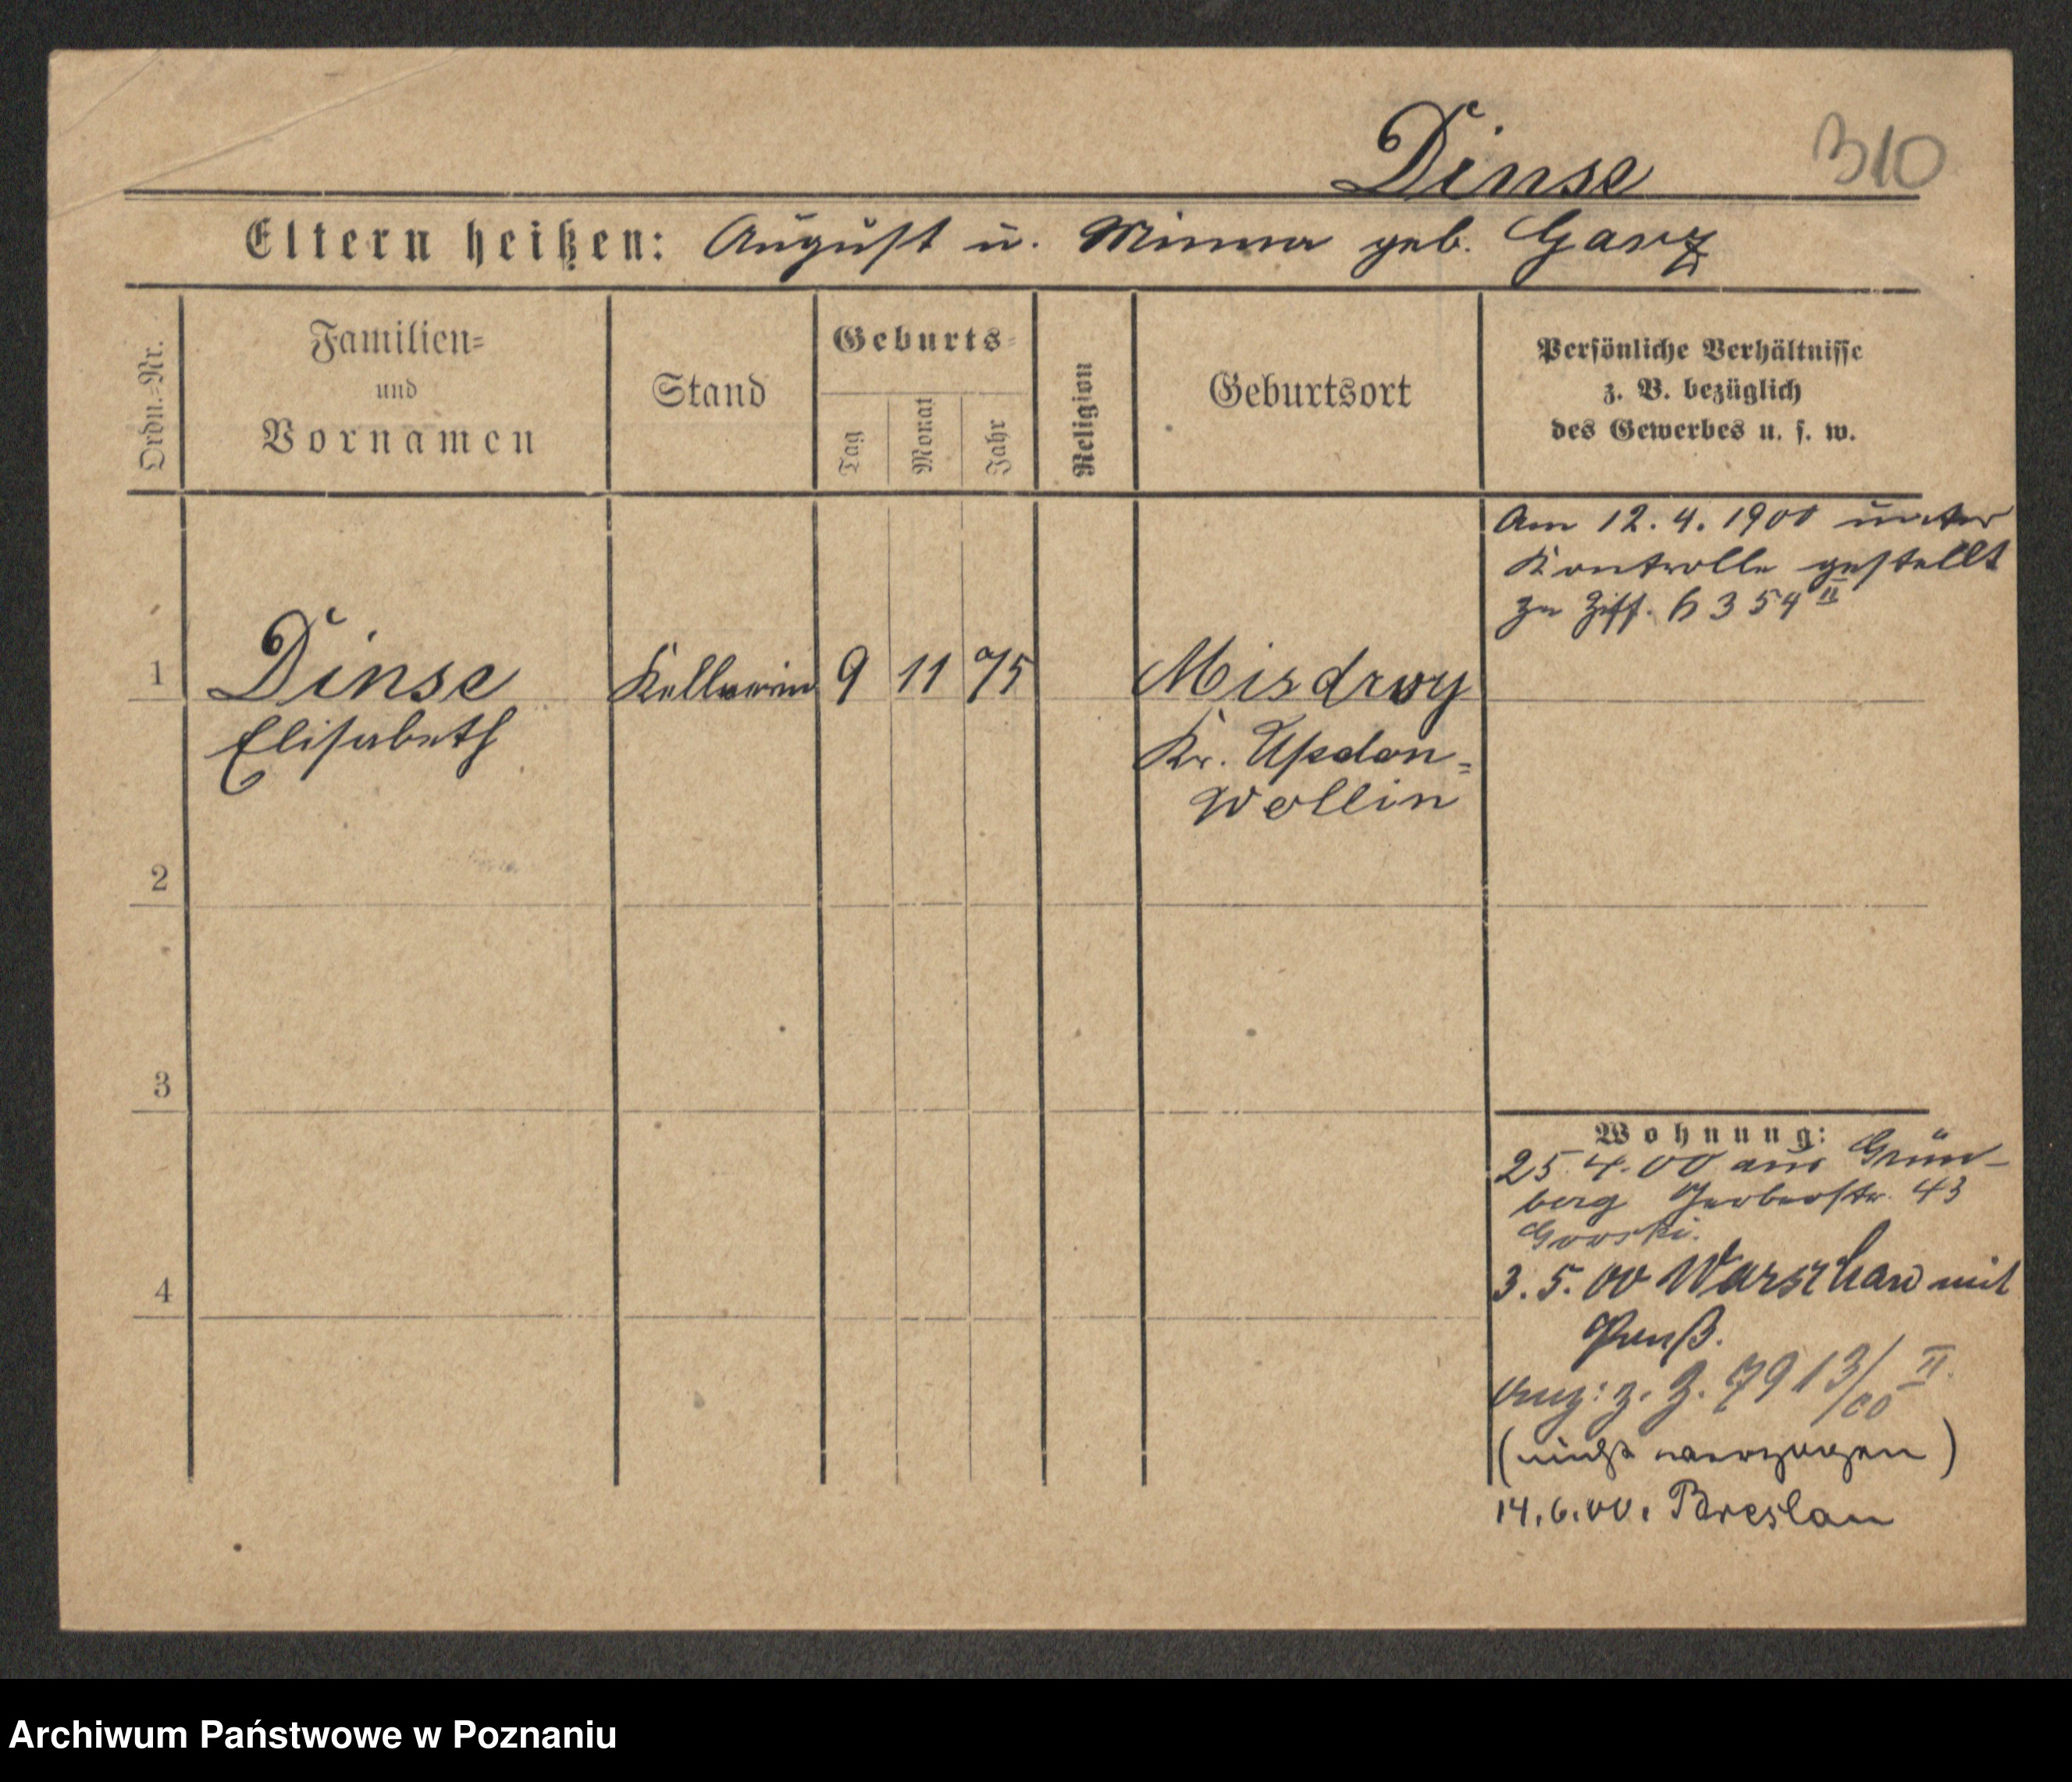 Dinse 310
Eltern heißen: August u. Minna geb. Garz
Ordn.-Nr.
Familien-
und
Vornamen
Stand
Geburts-
Tag
Monat
Jahr
Religion
Geburtsort
Persönliche Verhältnisse
z. B. bezüglich
des Gewerbes u. s. w.
Am 12.4.1900 unter
Kontrolle gestellt
zu Ziff. 6354 II
1 Dinse Kellnerin 9 11 75 Misdroy
Elisabeth Kr. Usedom-
Wollin
2
3
Wohnung:
25.4.00 aus Grün-
berg Gerberstr. 43
Gorski.
4
3.5.00 Warschau mit
Paß.
z. Z. 7913/00 II.
(nicht verzogen)
14.6.00. Breslau
Archiwum Państwowe w Poznaniu